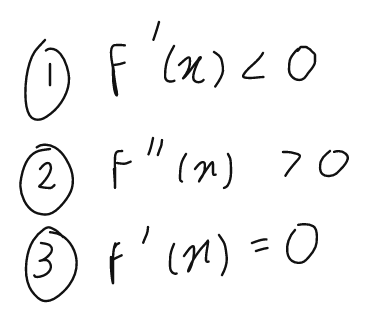 ① F'(x) < 0
② F"(x) > 0
③ F'(x) = 0